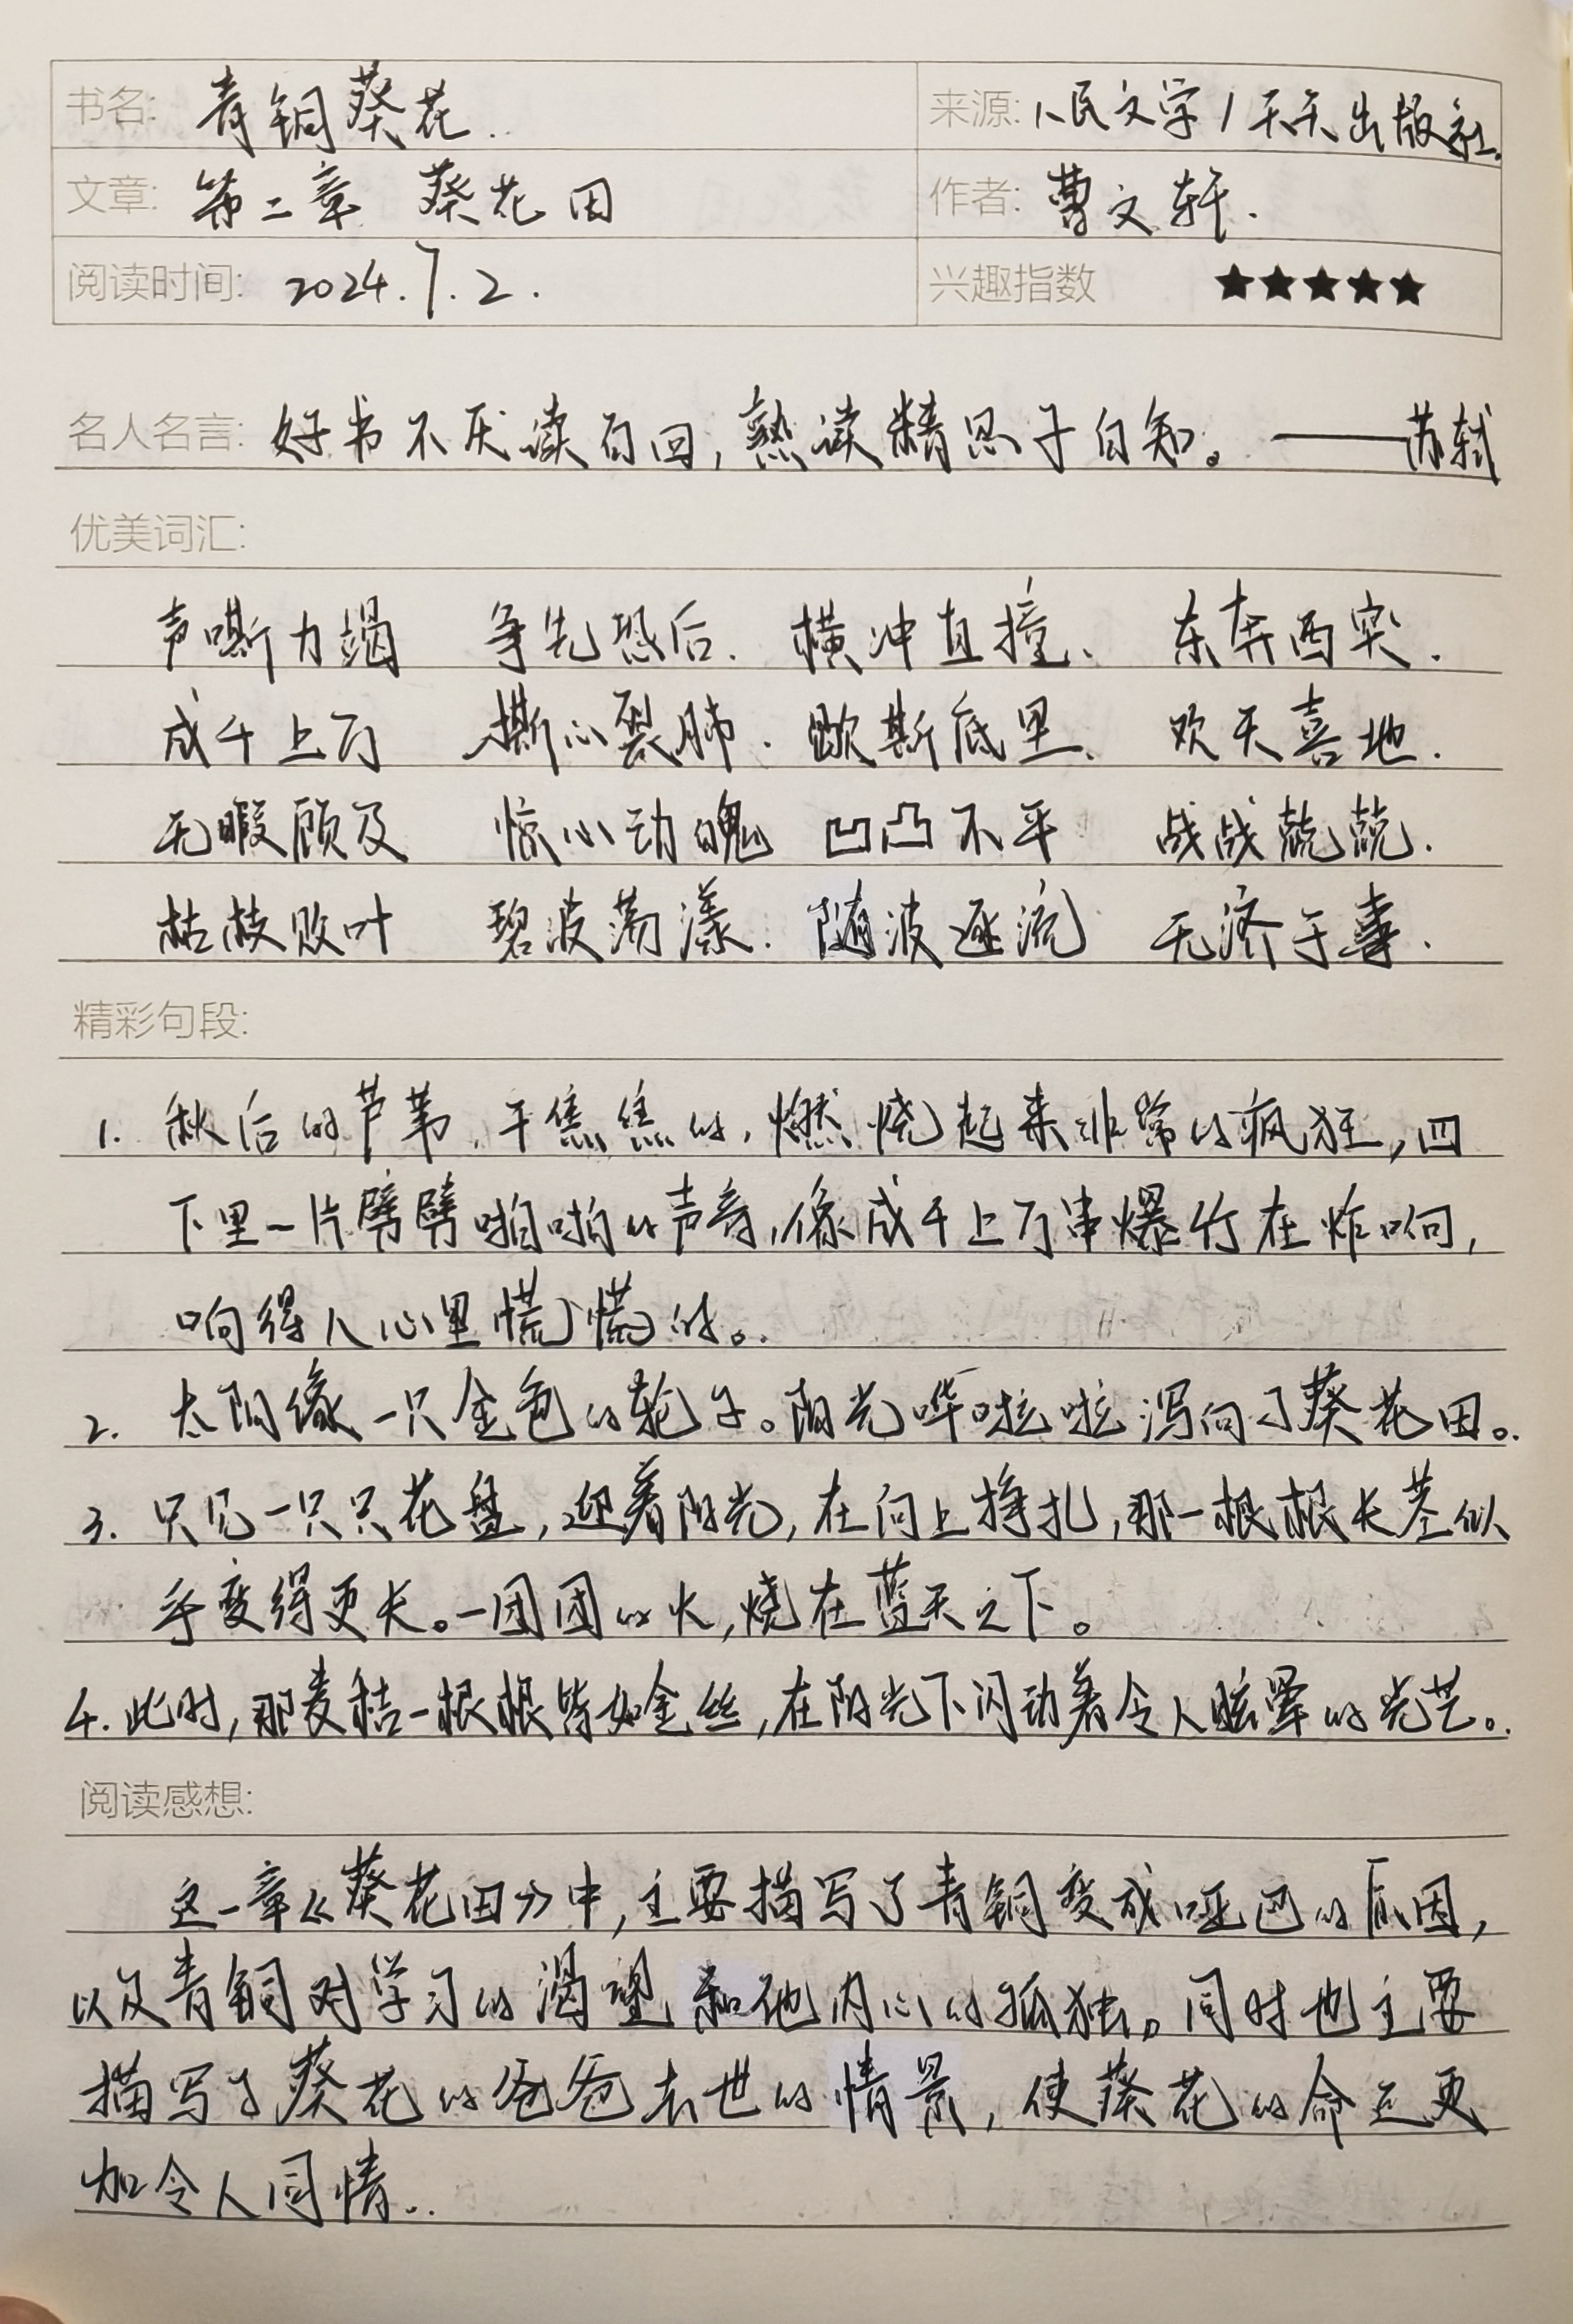 书名: 青铜葵花. 来源: 人民文学/天天出版社.
文章: 第二章 葵花田 作者: 曹文轩.
阅读时间: 2024.7.2. 兴趣指数 ★★★★★
名人名言: 好书不厌读百回,熟读精思子自知。——苏轼
优美词汇:
声嘶力竭 争先恐后. 横冲直撞、 东奔西突.
成千上万 撕心裂肺. 歇斯底里、 欢天喜地.
无暇顾及 惊心动魄 凹凸不平 战战兢兢.
枯枝败叶 碧波荡漾. 随波逐流 无济于事.
精彩句段:
1. 秋后的芦苇,干焦焦的,燃烧起来非常的疯狂,四
下里一片劈劈啪啪的声音,像成千上万串爆竹在炸响,
响得人心里慌慌的。.
2. 太阳像一只金色的轮子。阳光哗啦啦泻向了葵花田。.
3. 只见一只只花盘,迎着阳光,在向上挣扎,那一根根长茎似
乎变得更长。一团团的火,烧在蓝天之下。
4. 此时,那麦秸一根根皆如金丝,在阳光下闪动着令人眩晕的光芒。.
阅读感想:
这一章《葵花田》中,主要描写了青铜变成哑巴的原因,
以及青铜对学习的渴望和他内心的孤独。同时也主要
描写了葵花的爸爸去世的情景,使葵花的命运更
加令人同情。.